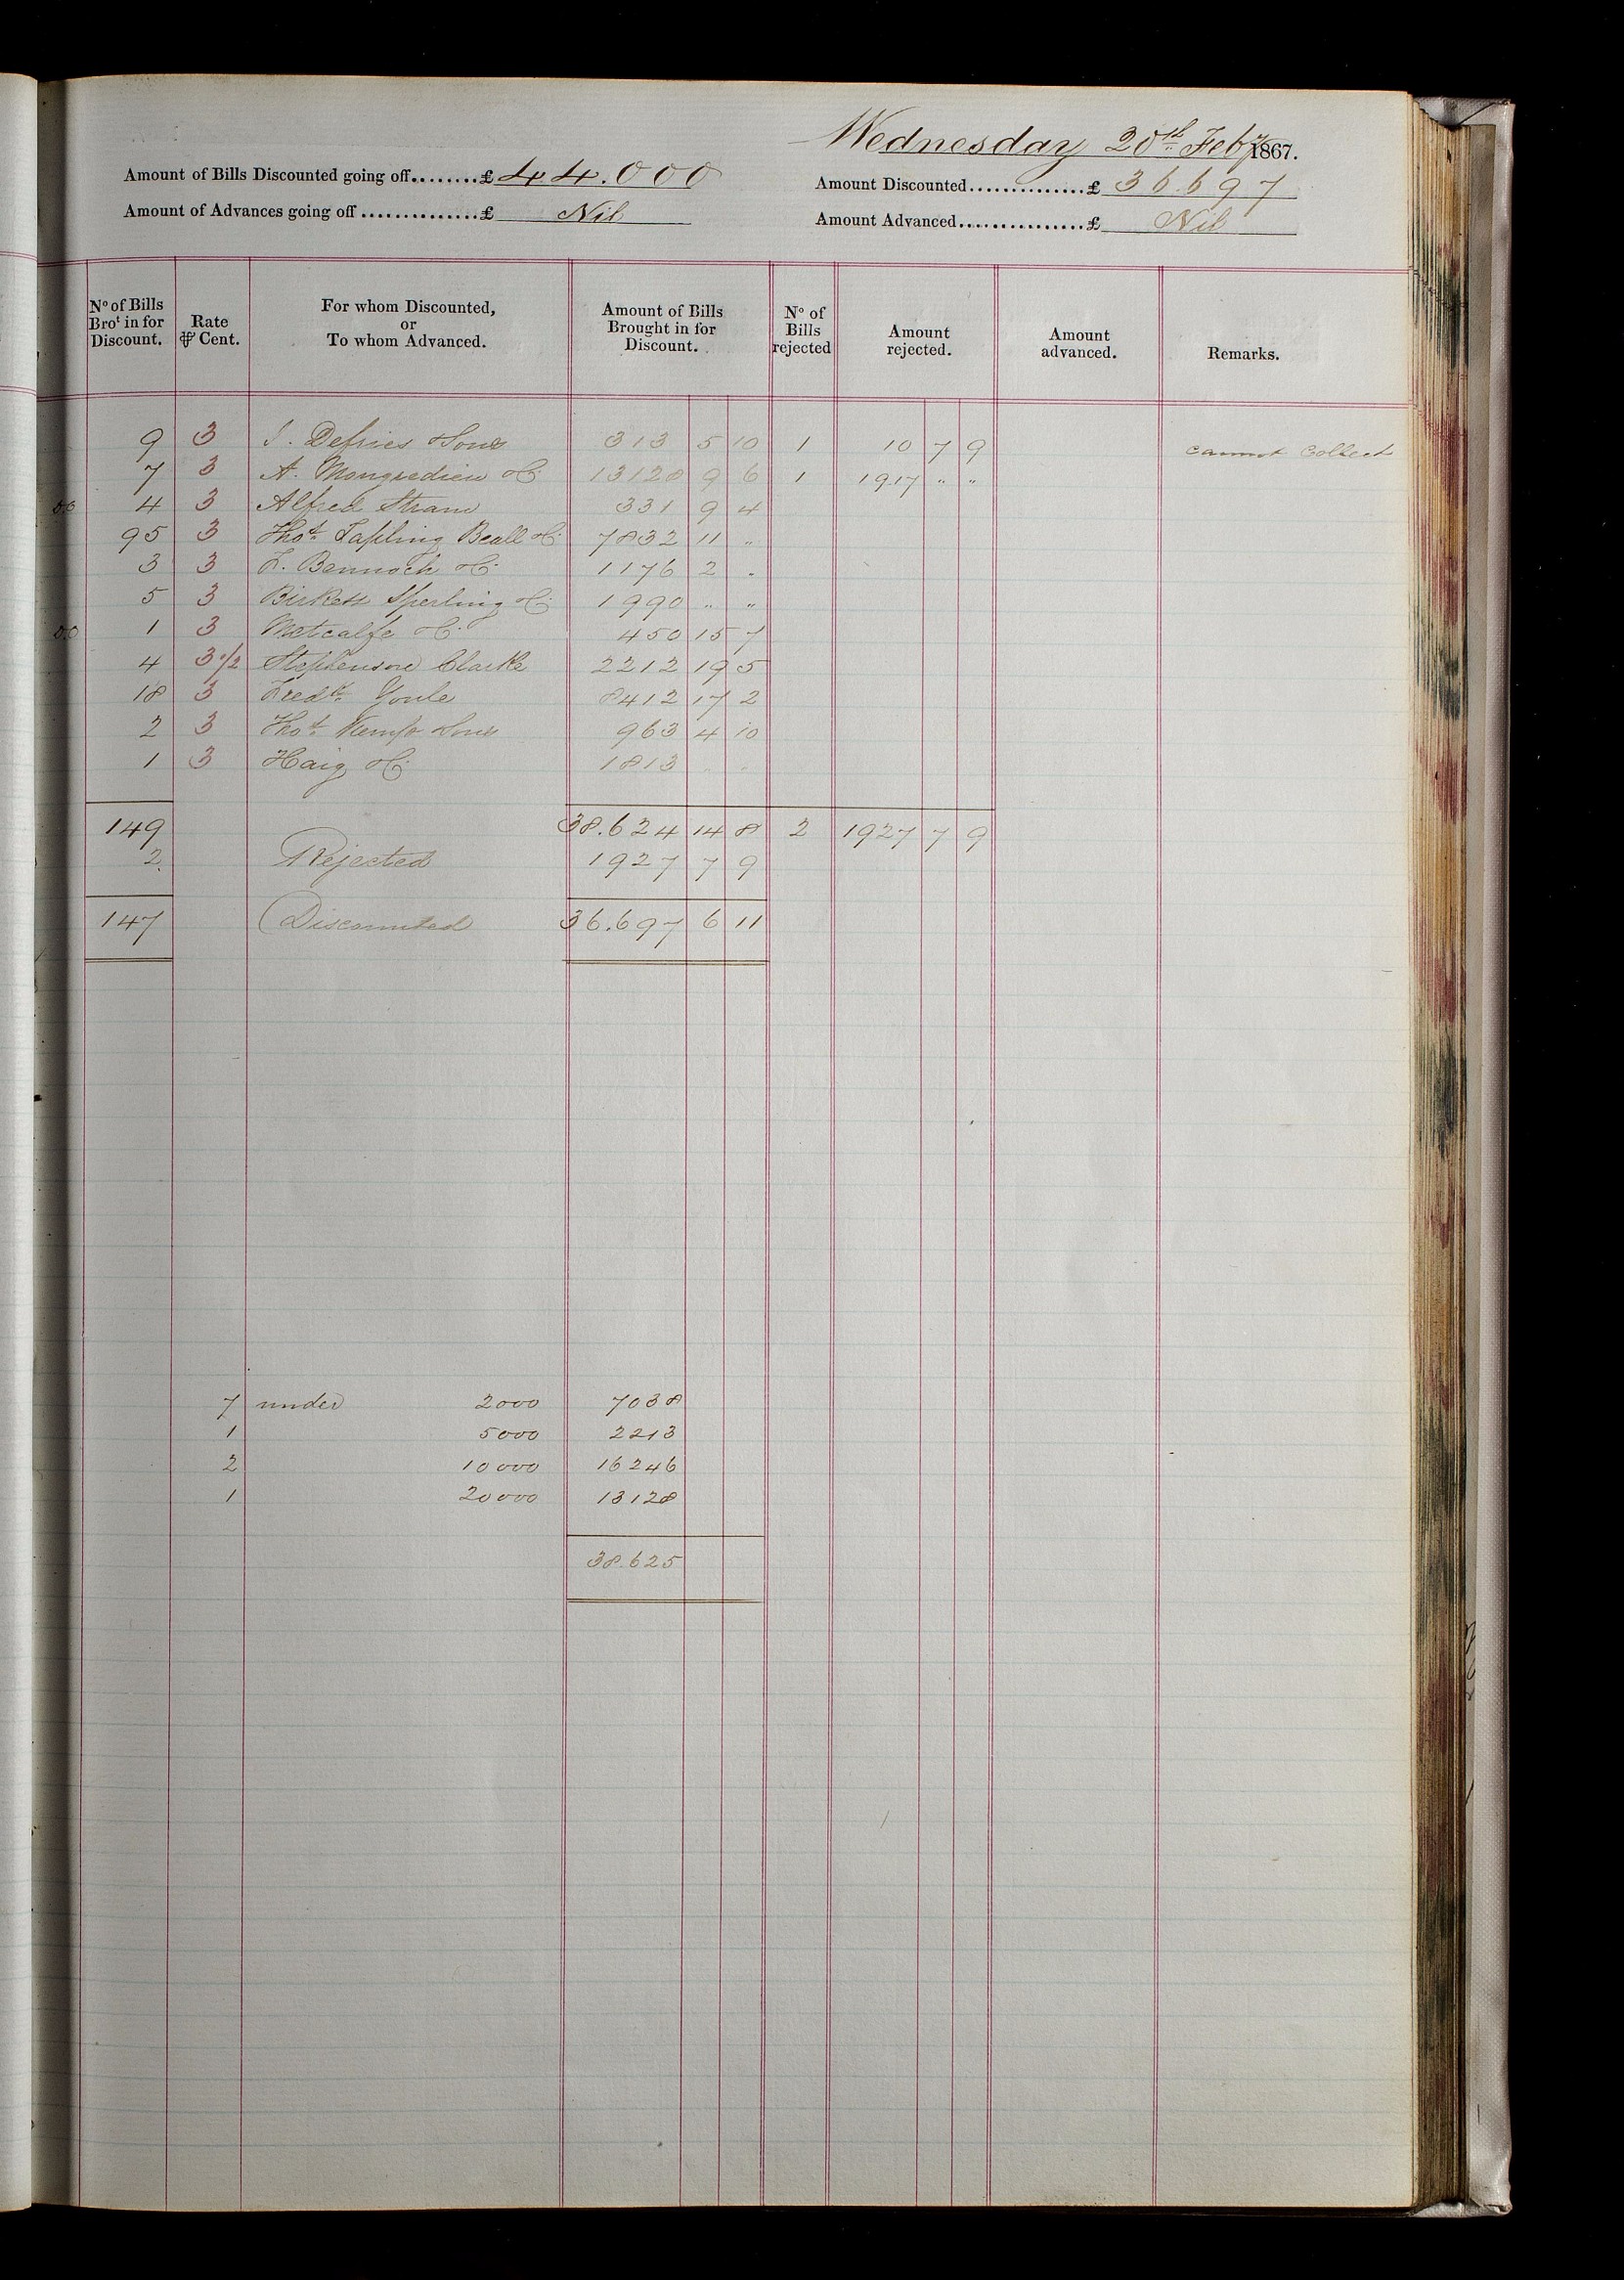 Wednesday 20th Feby 1867.
Amount of Bills Discounted going off........£ 44.000 Amount Discounted...............£ 36.697
Amount of Advances going off...............£ Nil Amount Advanced................£ Nil
No of Bills Brot in for Discount. Rate ⅌ Cent. For whom Discounted, or To whom Advanced. Amount of Bills Brought in for Discount. No of Bills rejected Amount rejected. Amount advanced. Remarks.
9 3 J. Defries & Sons 313 5 10 1 10 7 9 cannot Collect
7 3 A. Mongredien & Co 13128 9 6 1 1917 " "
4 3 Alfred 331 9 4
95 3 Thos Tapling Beall & Co 7832 11 "
3 3 F. Bennoch & Co 1176 2 "
5 3 Birkett Sperling & Co 1990 " "
1 3 Metcalfe & Co 450 15 7
4 3 1/2 Stephenson Clarke 2212 19 5
18 3 Fredk Youle 8412 17 2
2 3 Thos Kemp & Sons 963 4 10
1 3 Haig & Co 1813 " "
149 38.624 14 8 2 1927 7 9
2 Rejected 1927 7 9
147 Discounted 36.697 6 11
7 under 2000 7038
1 5000 2213
2 10000 16246
1 20000 13128
38.625